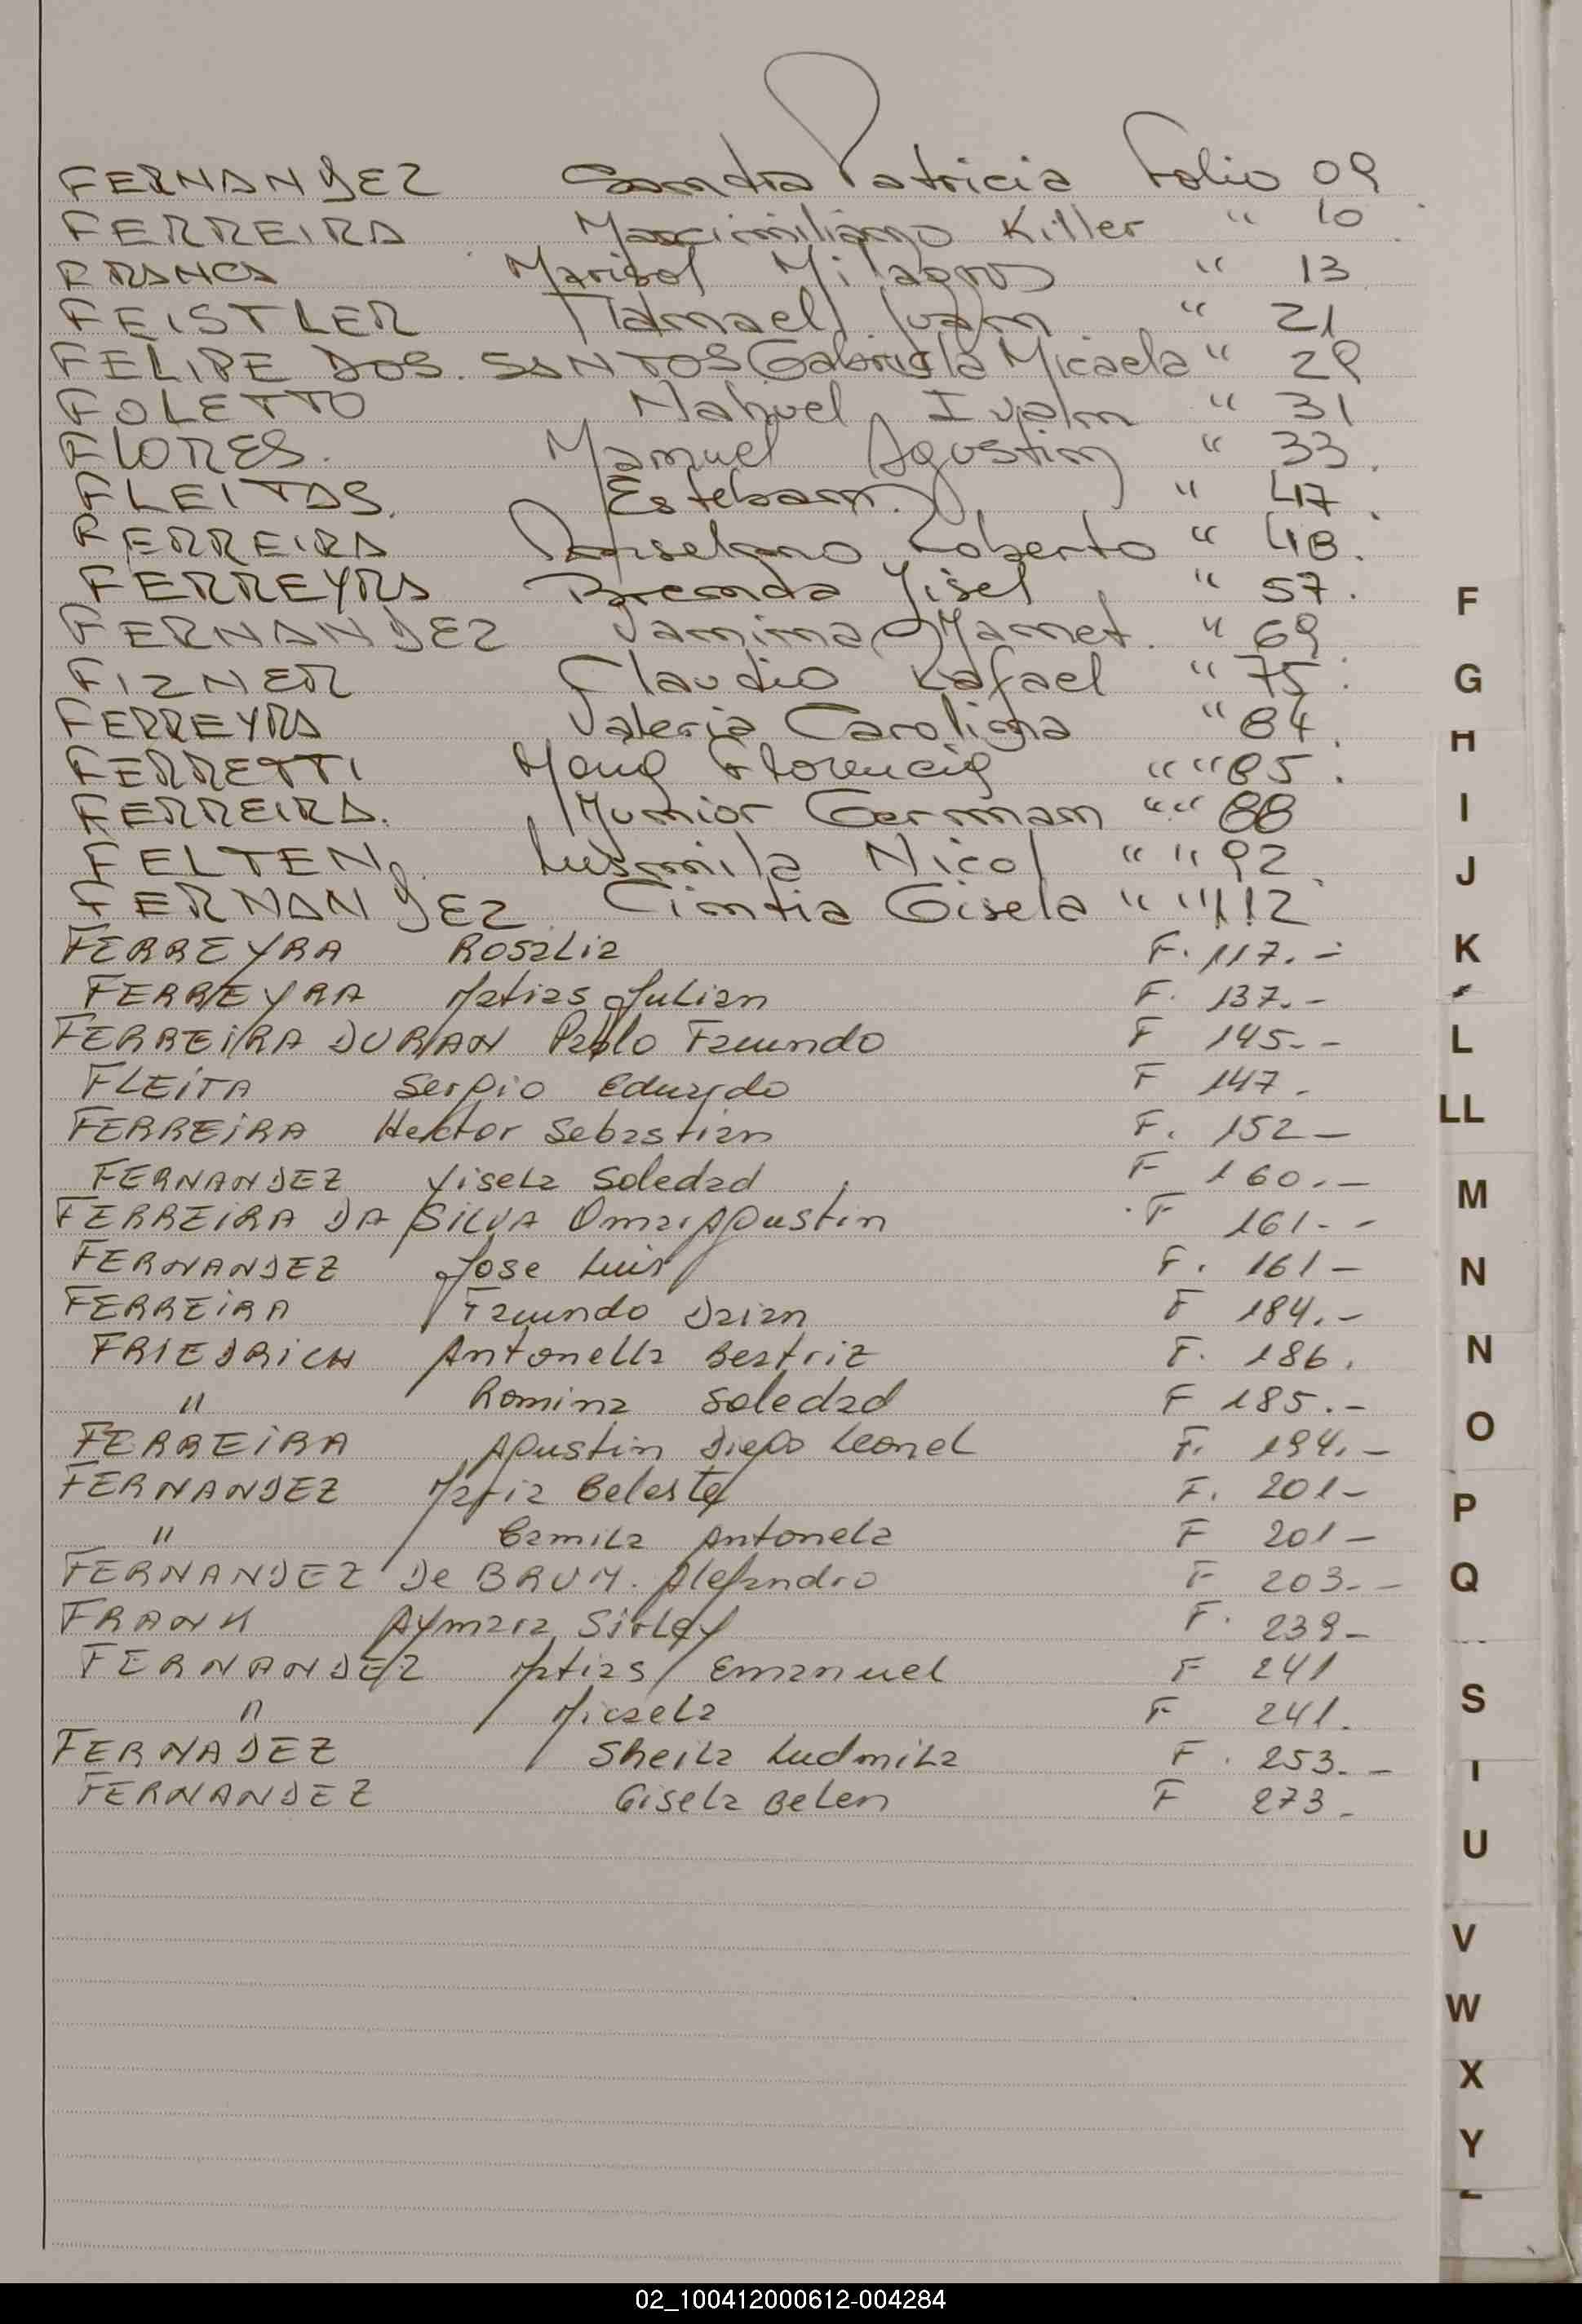 FERNANDEZ Sandra Patricia Folio 09
FERREIRA Maximiliano Killer " 10
FRANCA Marisol Milagros " 13
FEISTLER Ivan " 21
FELIPE DOS SANTOS Gabriela Micaela " 29
FOLETTO Nahuel Ivan " 31
FLORES. Manuel Agustin " 33.
FLEITAS. Esteban. " 47
FERREIRA Roberto " 48.
FERREYRA Brenda Yisel " 57.
FERNANDEZ Yamina Yanet. " 69
FIZNER Claudio Rafael " 75
FERREYRA Valeria Carolina " 84.
FERRETTI Florencia " " 85.
FERREIRA. Junior German " " 88
FELTEN. Ludmila Nicol " " 92
FERNANDEZ Cintia Gisela " " 112
FERREYRA Rosalia F. 117.-
FERREYRA Matias Julian F. 137.-
FERREIRA DURAN Pablo Facundo F 145.-
FLEITA Sergio Eduardo F 147.
FERREIRA Hector Sebastian F. 152-
FERNANDEZ Yisela Soledad F 160.-
FERREIRA DA SILVA Omar Agustin F 161.-
FERNANDEZ Jose Luis F. 161-
FERREIRA Facundo Daian F 184.-
FRIEDRICH Antonella Beatriz F. 186.
" Romina Soledad F 185.-
FERREIRA Agustin Diego Leonel F. 194.-
FERNANDEZ Maria Celeste F. 201-
" Camila Antonela F 201-
FERNANDEZ De BRUM. Alejandro F 203.-
FRANK Aymara Sirley F. 239-
FERNANDEZ Matias Emanuel F 241
" Micaela F 241.
FERNADEZ Sheila Ludmila F. 253.-
FERNANDEZ Gisela Belen F 273.
F
G
H
I
J
K
L
LL
M
N
N
O
P
Q
S
U
V
W
X
Y
02_100412000612-004284